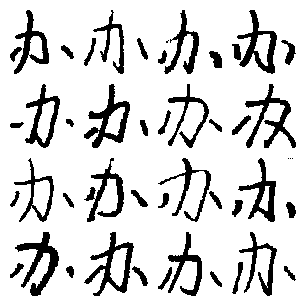 办办办办
办办办办
办办办办
办办办办